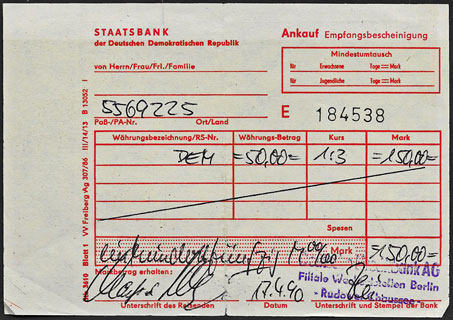 STAATSBANK
der Deutschen Demokratischen Republik
Ankauf Empfangsbescheinigung
von Herrn/Frau/Frl./Familie
Mindestumtausch
für Erwachsene Tage = Mark
für Jugendliche Tage = Mark
5569225
Paß-/PA-Nr. Ort/Land
E 184538
Währungsbezeichnung/RS-Nr. Währungs-Betrag Kurs Mark
DEM =50,00= 1:3 =150,00=
Spesen
einhundertfünfzig M 00/100 Mark =150,00=
Markbetrag erhalten:
AG
Filiale Berlin
17.4.90
Unterschrift des Reisenden Datum Unterschrift und Stempel der Bank
Blatt 1 VV Freiberg Ag 307/86 III/14/13 B 13052 I